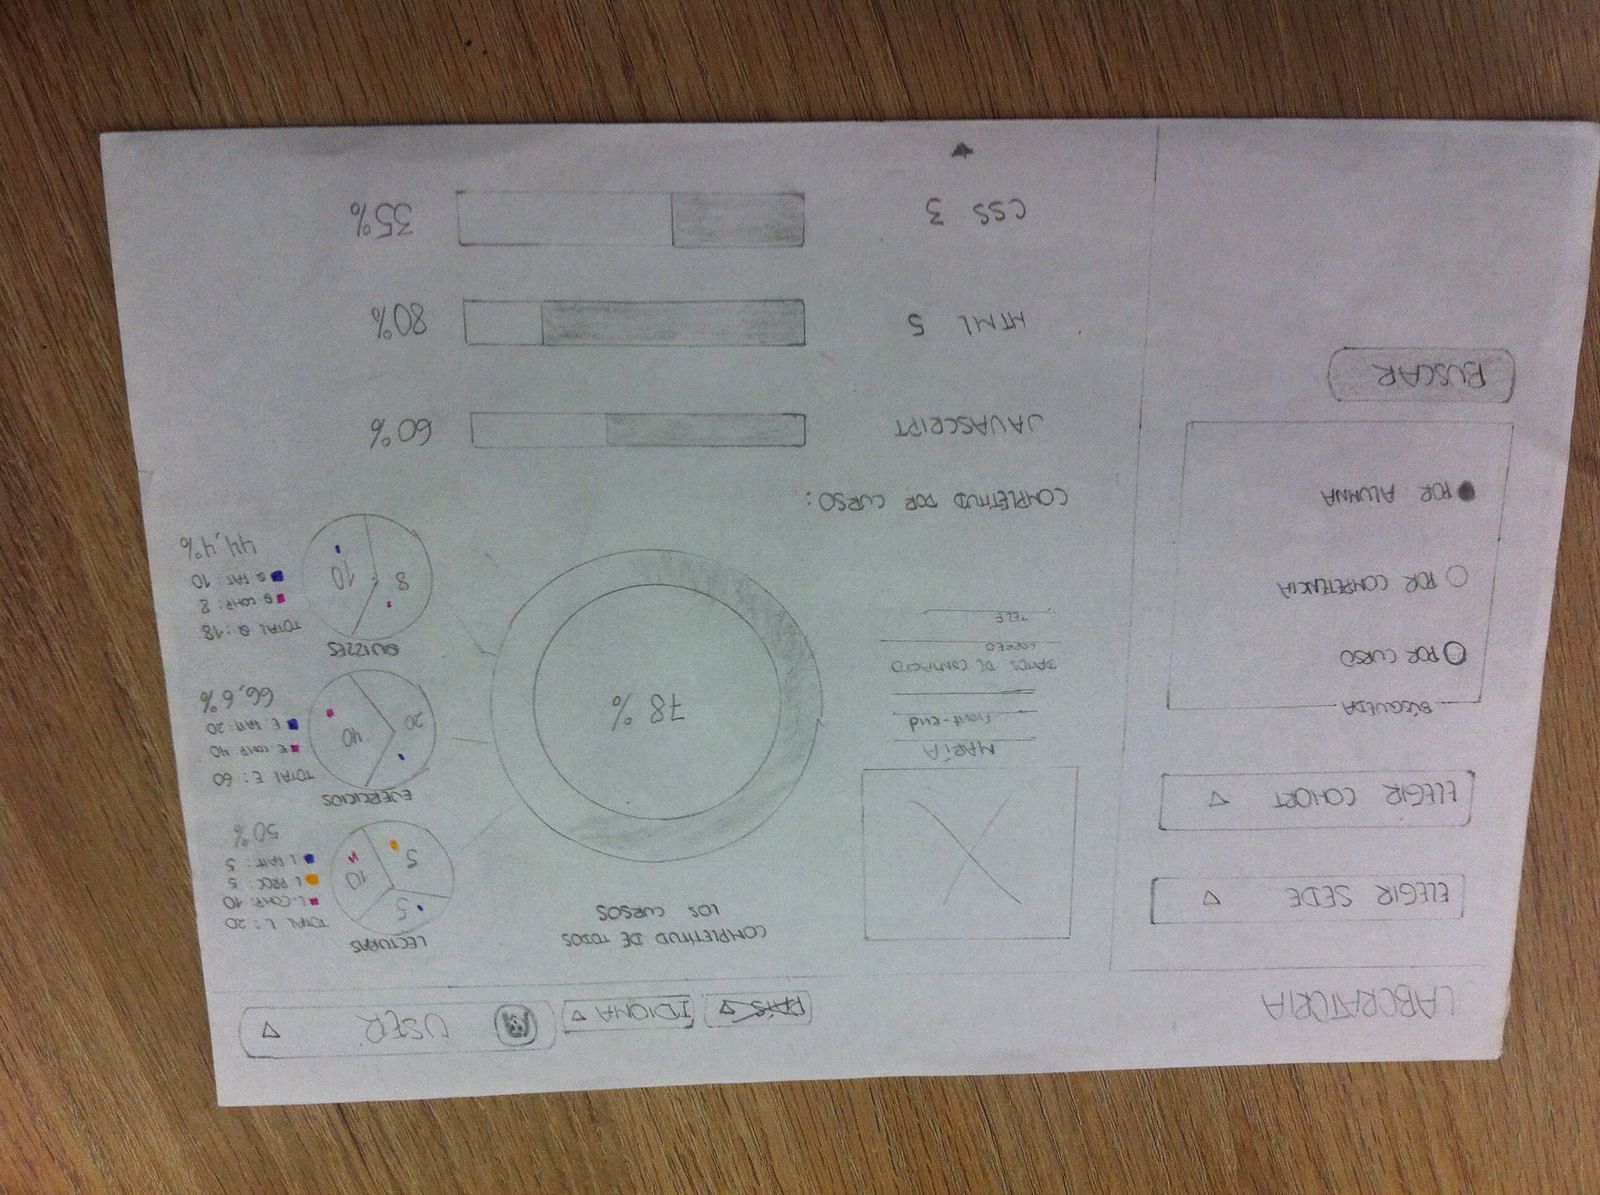 LABORATORIA
PAÍS
IDIOMA
USER
ELEGIR SEDE
ELEGIR COHORT
BÚSQUEDA
POR CURSO
POR COMPETENCIA
POR ALUMNA
BUSCAR
MARÍA
Front-end
DATOS DE CONTACTO
CORREO
TELE
COMPLETITUD DE TODOS
LOS CURSOS
78 %
LECTURAS
5
10
5
TOTAL L: 20
L. COMP: 10
L PROC: 5
L FALT: 5
50%
EJERCICIOS
20
40
TOTAL E: 60
E COMP: 40
E FALT: 20
66,6%
QUIZZES
8
10
TOTAL Q: 18
Q COMP: 8
Q FALT: 10
44,4%
COMPLETITUD POR CURSO:
JAVASCRIPT
60%
HTML 5
80%
CSS 3
35%